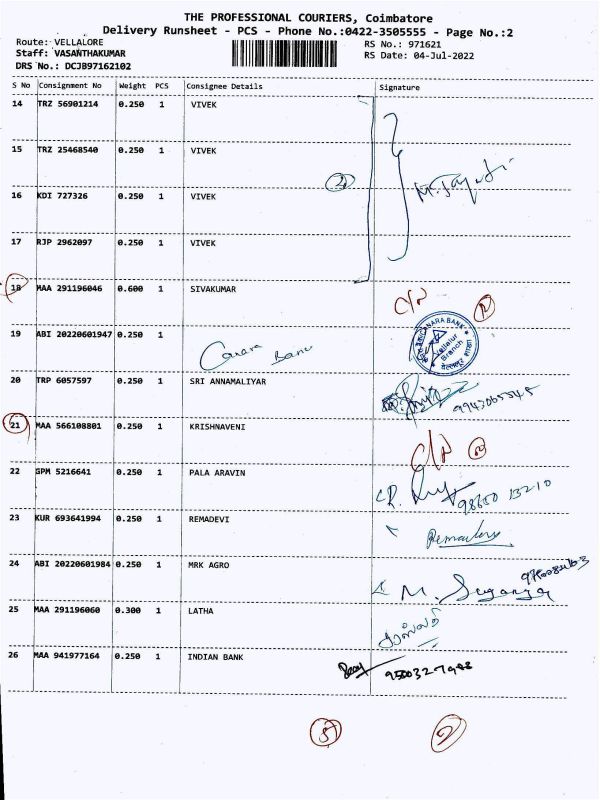 THE PROFESSIONAL COURIERS, Coimbatore
Delivery Runsheet - PCS - Phone No.:0422-3505555 - Page No.:2
Route: VELLALORE
RS No.: 971621
Staff: VASANTHAKUMAR
RS Date: 04-Jul-2022
DRS No.: DCJB97162102
S No Consignment No Weight PCS Consignee Details Signature
14 TRZ 56901214 0.250 1 VIVEK
15 TRZ 25468540 0.250 1 VIVEK
16 KDI 727326 0.250 1 VIVEK
17 RJP 2962097 0.250 1 VIVEK
18 MAA 291196046 0.600 1 SIVAKUMAR
19 ABI 20220601947 0.250 1 Canara Bank
CANARA BANK Vellalur Branch
20 TRP 6057597 0.250 1 SRI ANNAMALIYAR
21 MAA 566108801 0.250 1 KRISHNAVENI
22 GPM 5216641 0.250 1 PALA ARAVIN 98650 13210
23 KUR 693641994 0.250 1 REMADEVI
24 ABI 20220601984 0.250 1 MRK AGRO
25 MAA 291196060 0.300 1 LATHA
26 MAA 941977164 0.250 1 INDIAN BANK